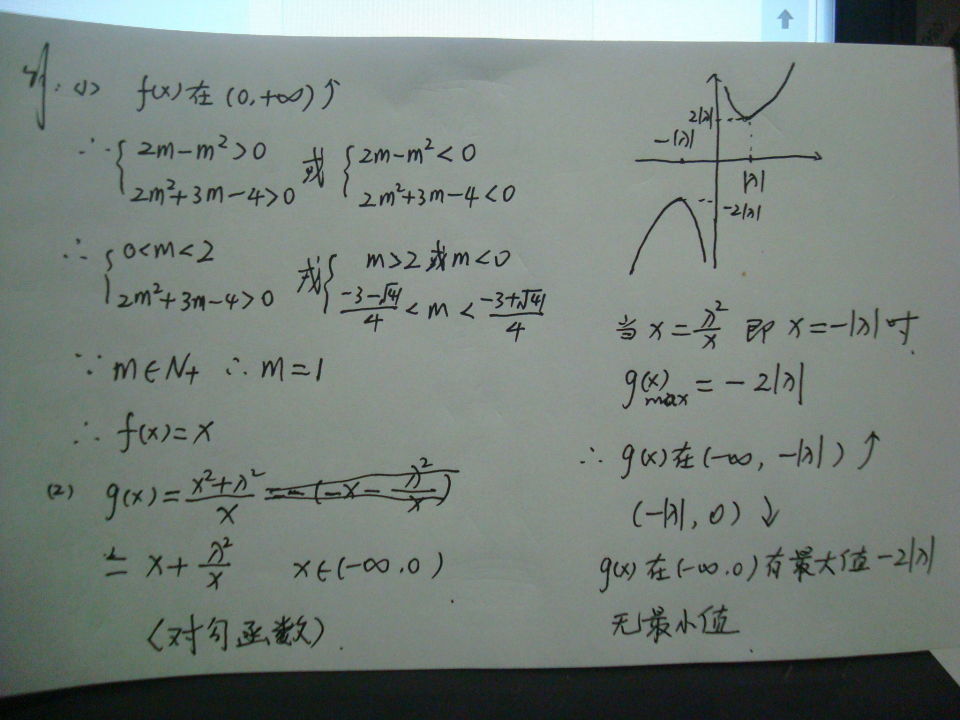 解:(1) f(x)在(0,+∞)↑
∴{2m-m²>0 2m²+3m-4>0 或 {2m-m²<0 2m²+3m-4<0
∴{0<m<2 2m²+3m-4>0 或{m>2或m<0 (-3-√41)/4<m<(-3+√41)/4
∵m∈N+ ∴m=1
∴f(x)=x
(2) g(x)=(x²+λ²)/x =-(-x-λ²/x)
=x+λ²/x x∈(-∞,0)
(对勾函数).
2|λ|
-|λ|
|λ|
-2|λ|
当x=λ²/x 即x=-|λ|时
g(x)max=-2|λ|
∴g(x)在(-∞,-|λ|)↑
(-|λ|,0)↓
g(x)在(-∞,0)有最大值-2|λ|
无最小值